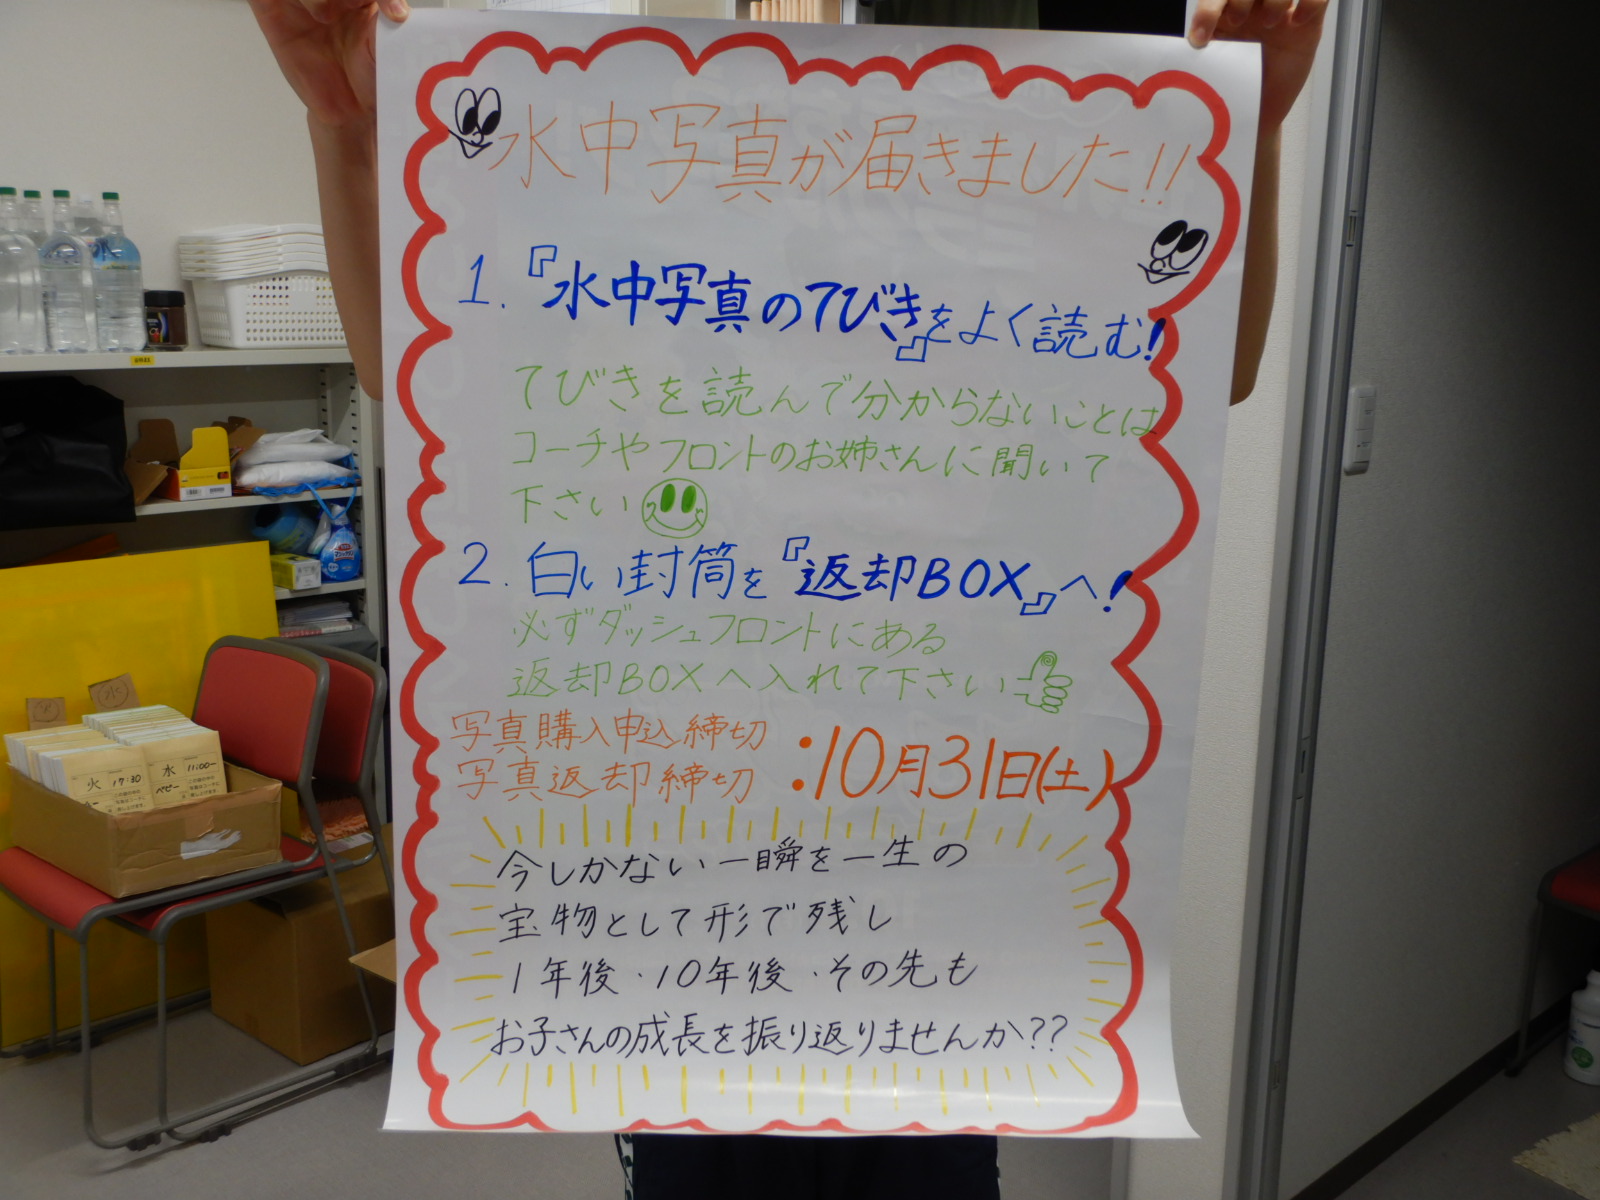 水中写真が届きました!!
1.『水中写真のてびき』をよく読む!
てびきを読んで分からないことは
コーチやフロントのお姉さんに聞いて
下さい
2.白い封筒を『返却BOX』へ!
必ずダッシュフロントにある
返却BOXへ入れて下さい
写真購入申込締切
写真返却締切
:10月31日(土)
今しかない一瞬を一生の
宝物として形で残し
1年後・10年後・その先も
お子さんの成長を振り返りませんか??
水
火 17:30
水 11:00〜
ベビー